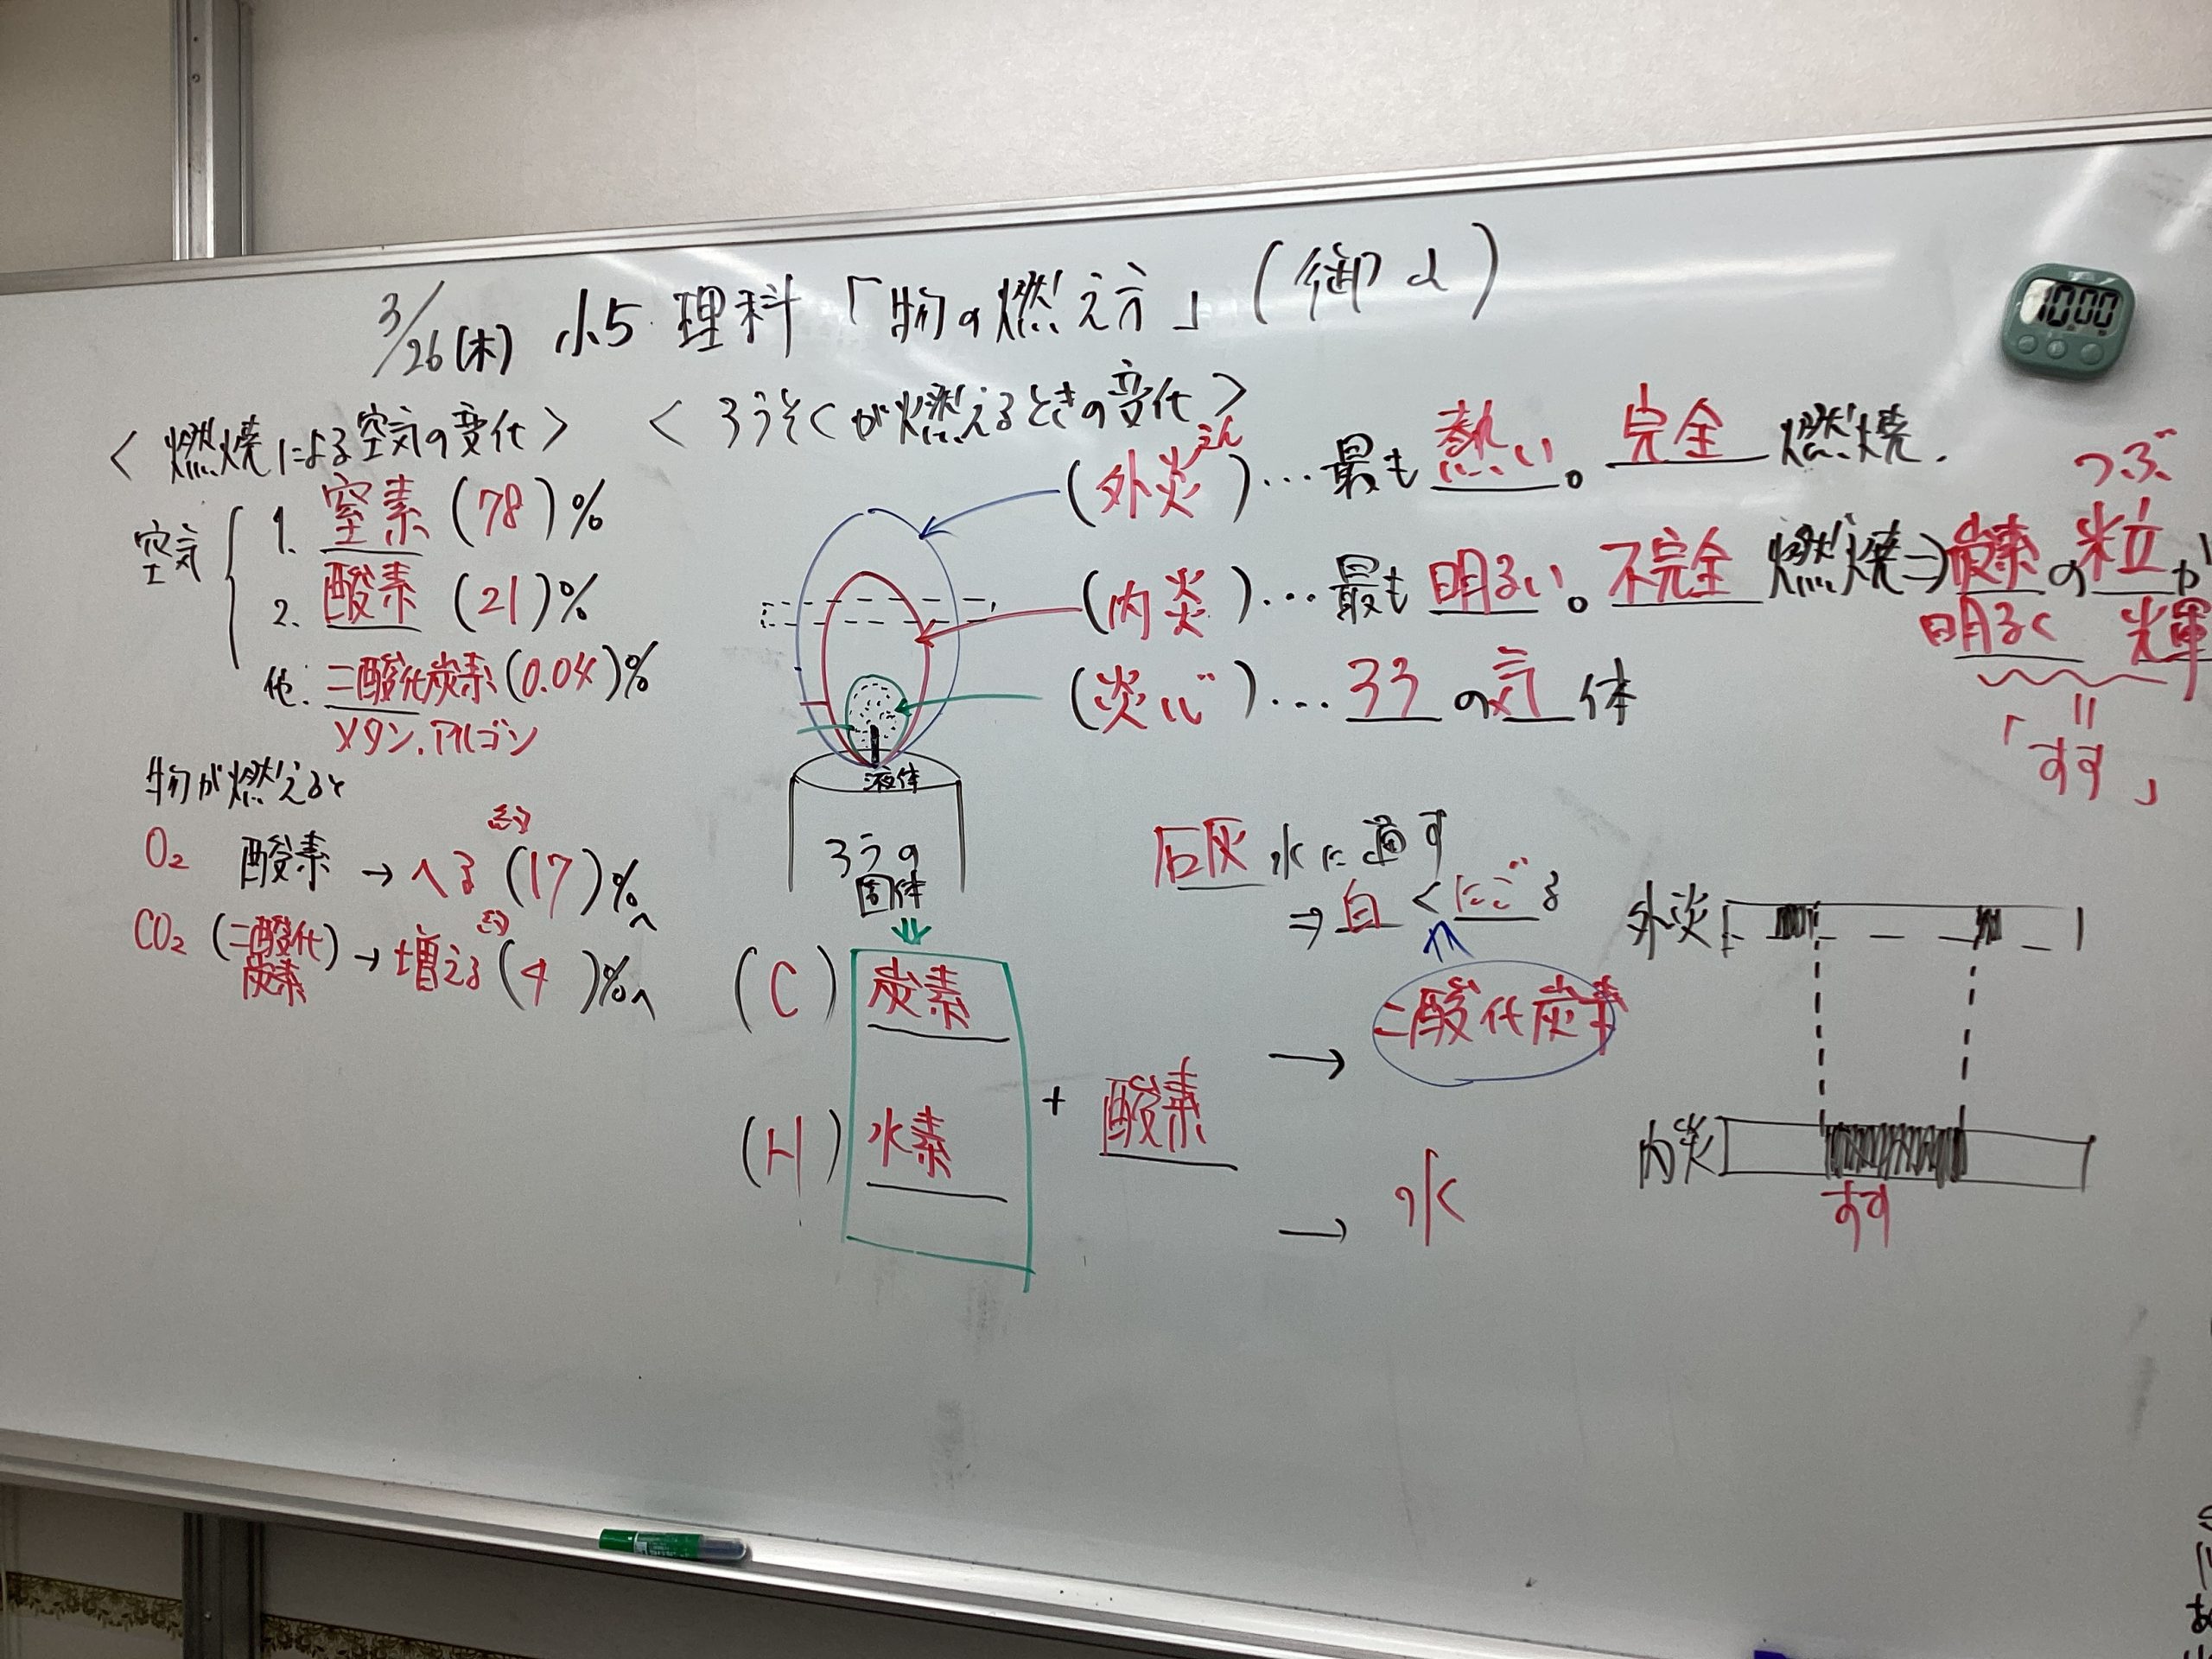 3/26(木) 小5 理科 「物の燃え方」 (御α)
10:00
<燃焼による空気の変化>
空気
1. 窒素 (78)%
2. 酸素 (21)%
他. 二酸化炭素 (0.04)%
メタン. アルゴン
物が燃えると
O₂ 酸素 → へる 約 (17)%へ
CO₂ (二酸化炭素) → 増える 約 (4)%へ
<ろうそくが燃えるときの変化>
(外炎)…最も熱い。完全燃焼.
えん
(内炎)…最も明るい。不完全燃焼⇒炭素の粒が
つぶ
明るく 光輝
=
「すす」
(炎心)…ろうの気体
液体
ろうの
固体
(C) 炭素
(H) 水素
+ 酸素
→ 二酸化炭素
→ 水
石灰水に通す
⇒ 白くにごる
外炎
内炎
すす